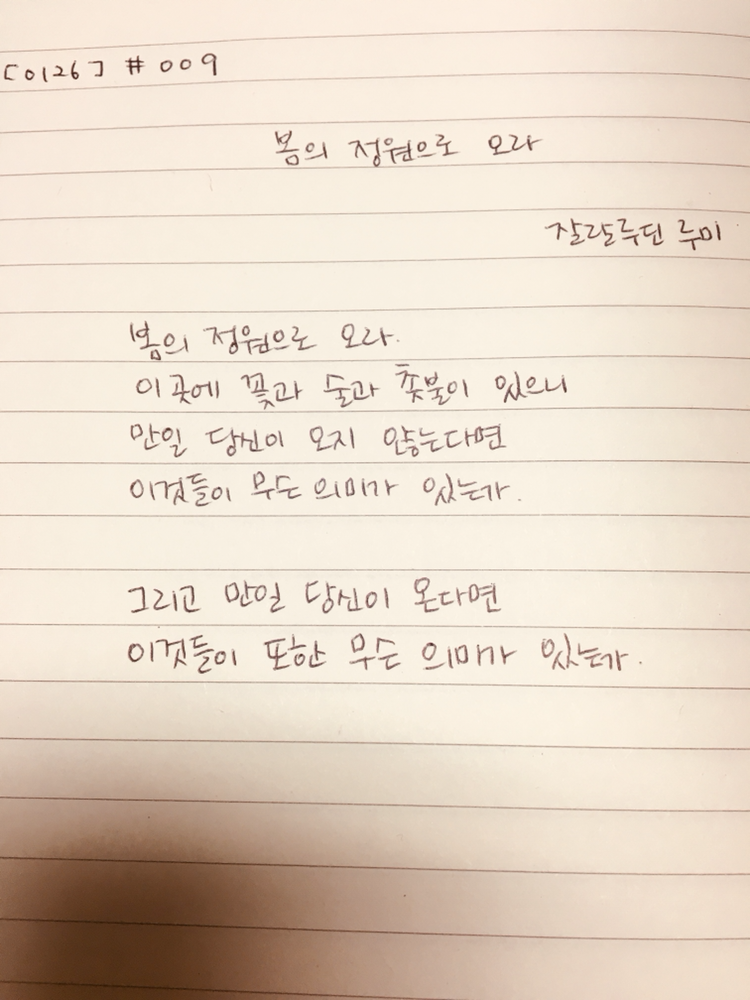 [0126] #009
봄의 정원으로 오라
잘랄루딘 루미
봄의 정원으로 오라.
이 곳에 꽃과 술과 촛불이 있으니
만일 당신이 오지 않는다면
이것들이 무슨 의미가 있는가.
그리고 만일 당신이 온다면
이것들이 또한 무슨 의미가 있는가.